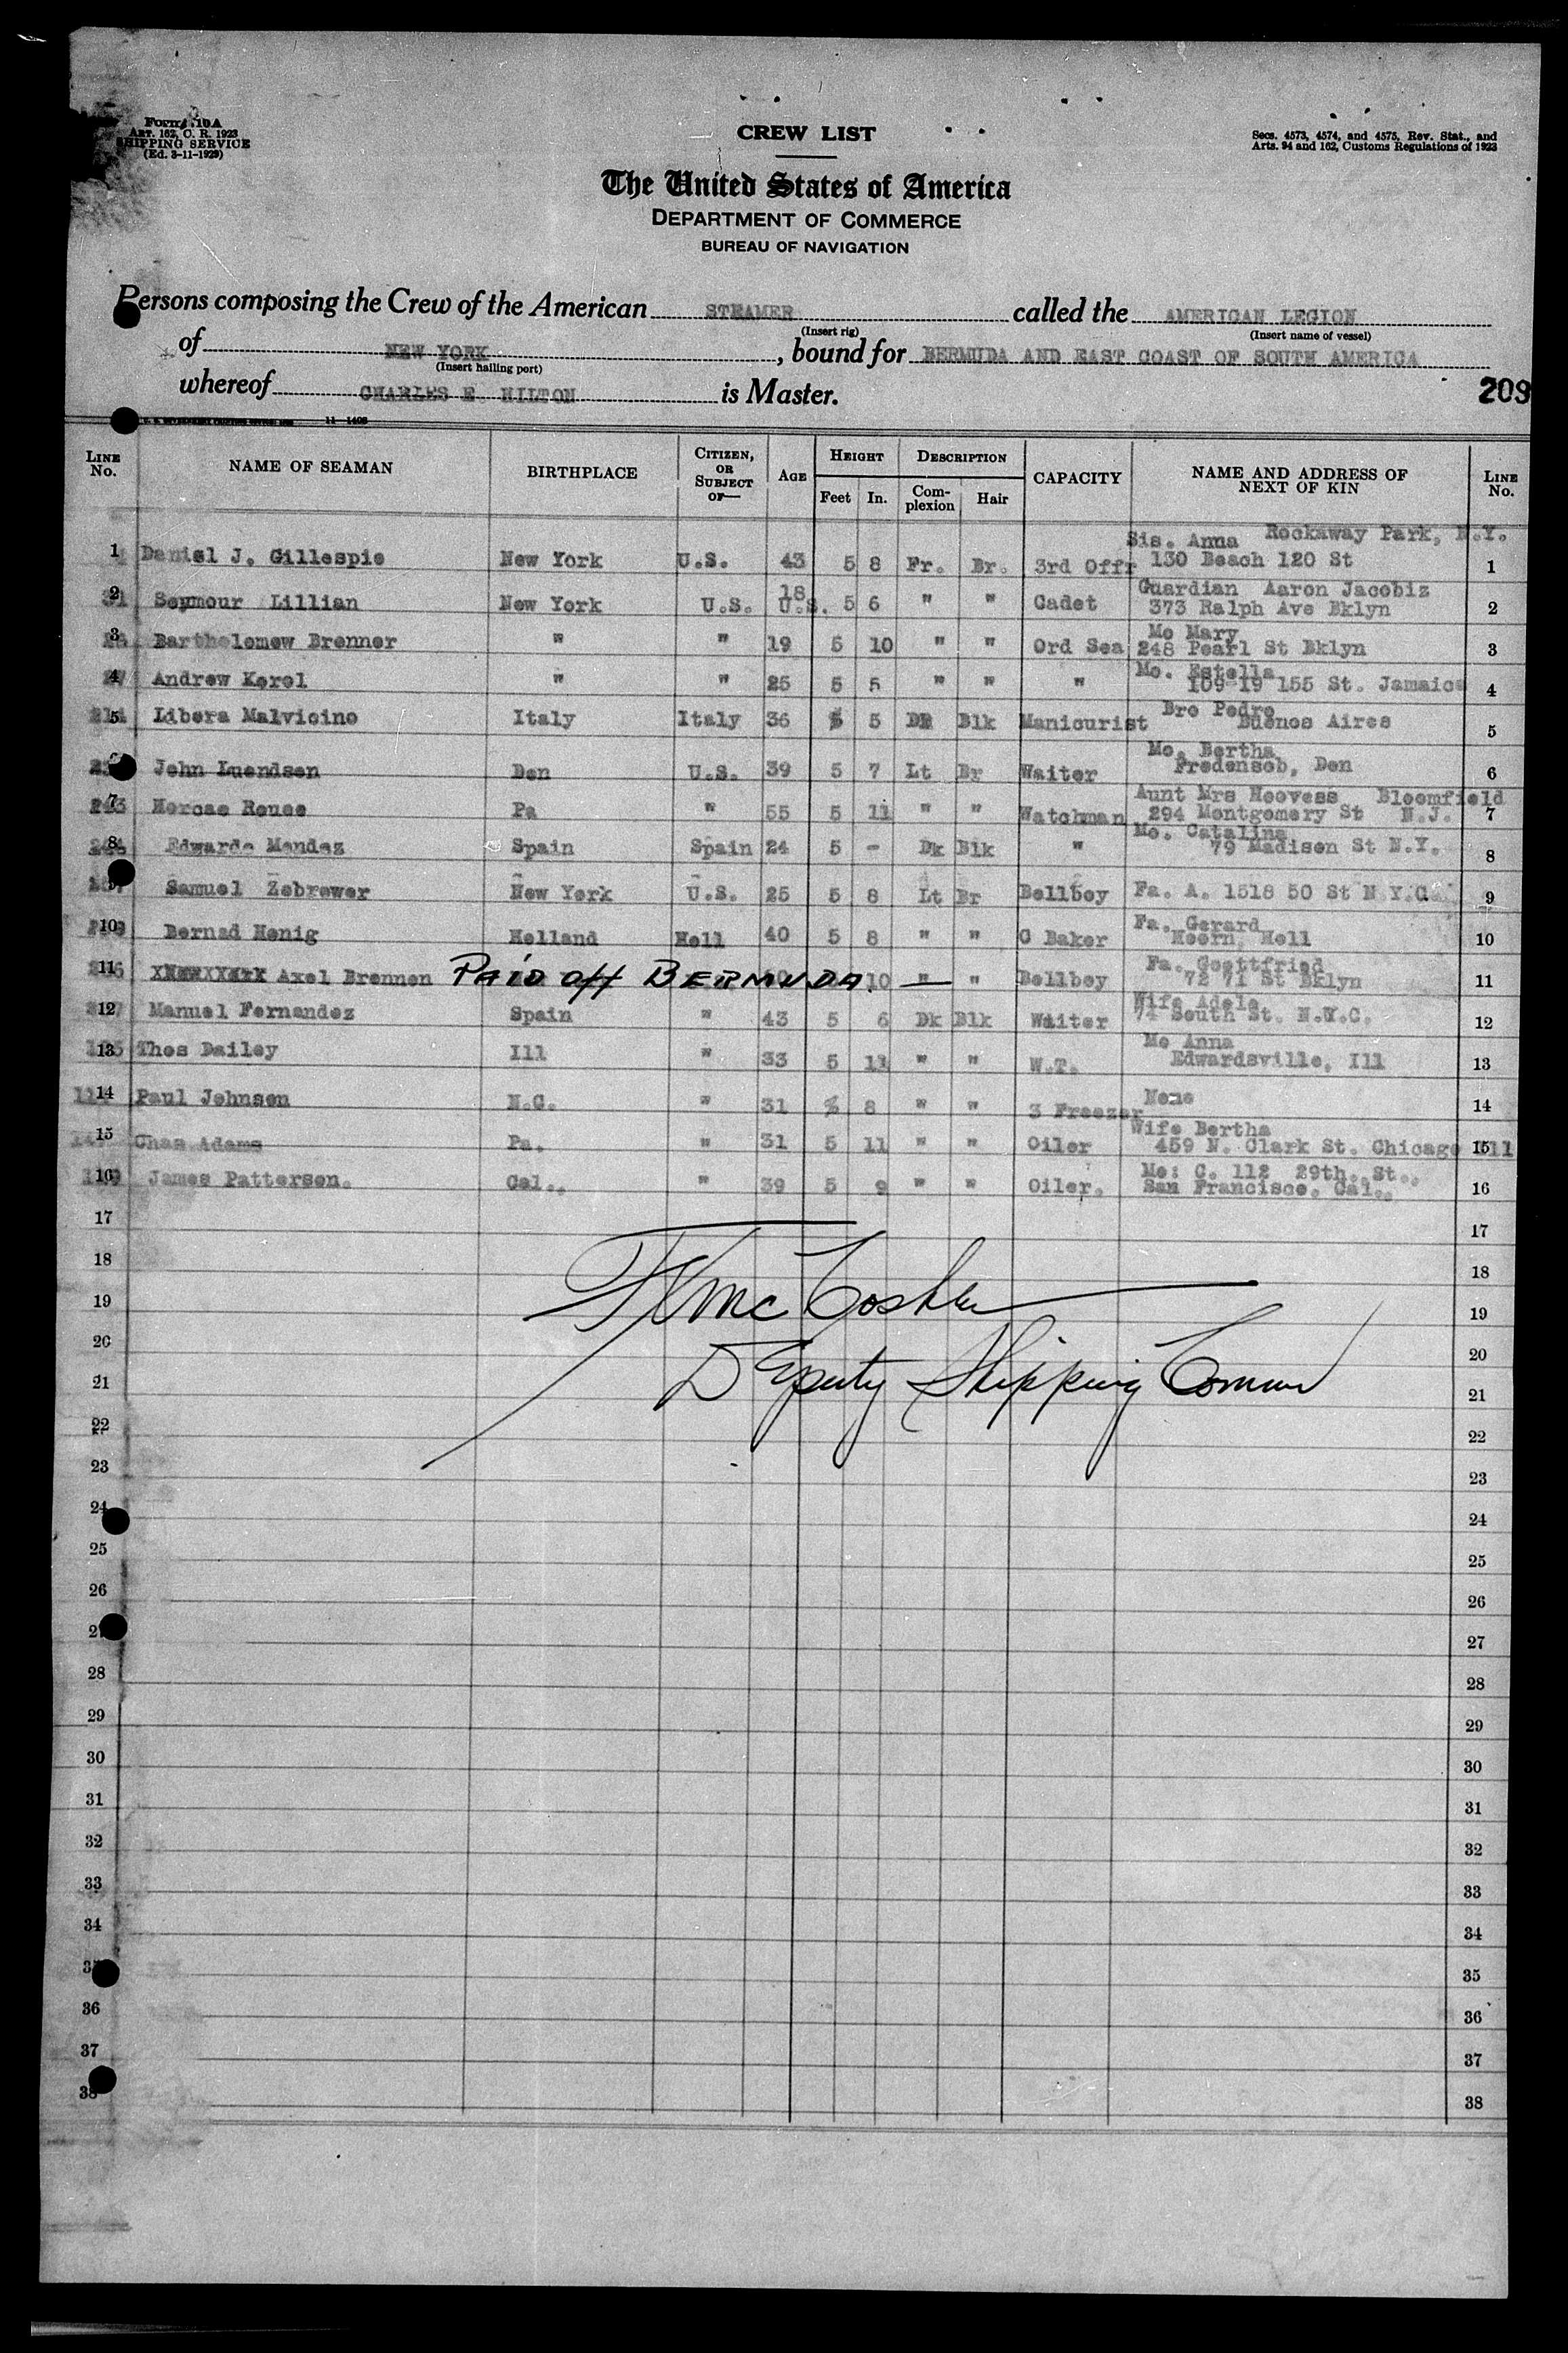 Form 710A
ART. 162, C. R. 1923
SHIPPING SERVICE
(Ed. 3-11-1929)
CREW LIST
Secs. 4573, 4574, and 4575, Rev. Stat., and
Arts. 94 and 162, Customs Regulations of 1923
The United States of America
DEPARTMENT OF COMMERCE
BUREAU OF NAVIGATION
Persons composing the Crew of the American STEAMER called the AMERICAN LEGION
(Insert rig) (Insert name of vessel)
of NEW YORK, bound for BERMUDA AND EAST COAST OF SOUTH AMERICA
(Insert hailing port)
whereof CHARLES E. HILTON is Master.
209
LINE No. NAME OF SEAMAN BIRTHPLACE CITIZEN, OR SUBJECT OF— AGE HEIGHT Feet In. DESCRIPTION Complexion Hair CAPACITY NAME AND ADDRESS OF NEXT OF KIN LINE No.
Sis. Anna Rockaway Park, N.Y.
1 Daniel J. Gillespie New York U.S. 43 5 8 Fr. Br. 3rd Offr 130 Beach 120 St 1
18 Guardian Aaron Jacobiz
2 Seymour Lillian New York U.S. U.S. 5 6 " " Cadet 373 Ralph Ave Bklyn 2
Mo Mary
3 Bartholomew Brenner " " 19 5 10 " " Ord Sea 248 Pearl St Bklyn 3
Mo. Estella
4 Andrew Korol " " 25 5 5 " " " 109-19 155 St. Jamaica 4
Bro Pedro
5 Libera Malvicino Italy Italy 36 5 5 DR Blk Manicurist Buenos Aires 5
Mo. Bertha
6 John Luendsen Den U.S. 39 5 7 Lt Br Waiter Fredensob, Den 6
Aunt Mrs Hoovess Bloomfield
7 Horcae Rouse Pa " 55 5 11 " " Watchman 294 Montgomery St N.J. 7
Mo. Catalina
8 Edwardo Mendez Spain Spain 24 5 - Dk Blk " 79 Madison St N.Y. 8
9 Samuel Zebrower New York U.S. 25 5 8 Lt Br Bellboy Fa. A. 1518 50 St N.Y.C. 9
Fa. Gerard
10 Bernad Honig Holland Holl 40 5 8 " " C Baker Hoorn, Holl 10
Fa. Goettfried
11 Axel Brennen PAID Off BERMUDA. 10 " " Bellboy 72 71 St Bklyn 11
Wife Adele
12 Manuel Fernandez Spain " 43 5 6 Dk Blk Waiter 74 South St. N.Y.C. 12
Mo Anna
13 Thos Dailey Ill " 33 5 11 " " W.T. Edwardsville, Ill 13
14 Paul Johnson N.C. " 31 5 8 " " 3 Freezer None 14
Wife Bertha
15 Chas Adams Pa. " 31 5 11 " " Oiler 459 N. Clark St. Chicago Ill 15
Mo: C. 112 29th. St.,
16 James Patterson. Cal., " 39 5 9 " " Oiler. San Francisco. Cal., 16
17 17
18 18
19 19
20 20
Deputy Shipping Commr
21 21
22 22
23 23
24 24
25 25
26 26
27 27
28 28
29 29
30 30
31 31
32 32
33 33
34 34
35 35
36 36
37 37
38 38